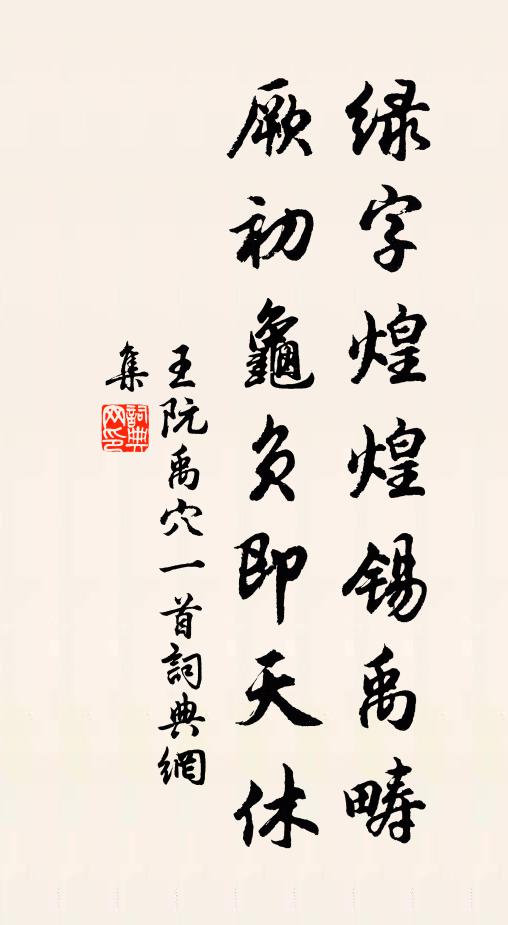 緑字煌煌锡禹畴
厥初龜负即天休
王阮禹穴一首詞典網
集
詞典網印